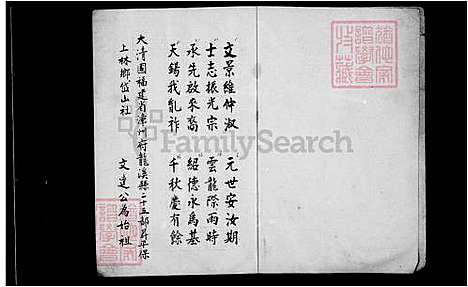 文景維仲淑　元世安汝期
士志振光宗　雲龍際雨時
承先啟來裔　紹德永為基
天錫我亂祚　千秋慶有餘
大清國福建省漳州府龍溪縣二十五都昇平保
上林鄉岱山社　文達公為始祖
FamilySearch